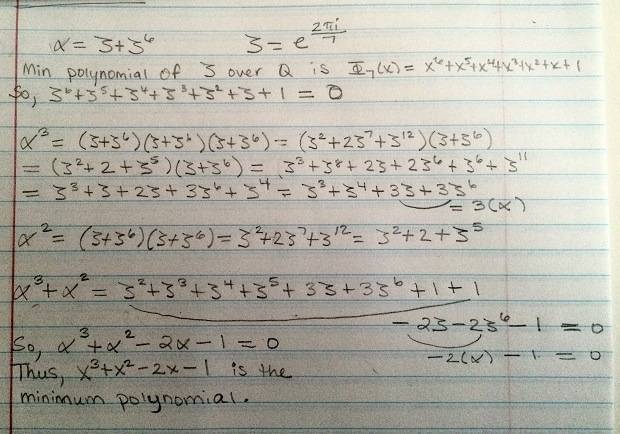 α = ζ+ζ⁶ ζ = e^(2πi/7)
Min polynomial of ζ over Q is Φ₇(x) = x⁶+x⁵+x⁴+x³+x²+x+1
So, ζ⁶+ζ⁵+ζ⁴+ζ³+ζ²+ζ+1 = 0
α³ = (ζ+ζ⁶)(ζ+ζ⁶)(ζ+ζ⁶) = (ζ²+2ζ⁷+ζ¹²)(ζ+ζ⁶)
= (ζ²+2+ζ⁵)(ζ+ζ⁶) = ζ³+ζ⁸+2ζ+2ζ⁶+ζ⁶+ζ¹¹
= ζ³+ζ+2ζ+3ζ⁶+ζ⁴ = ζ³+ζ⁴+3ζ+3ζ⁶
= 3(α)
α² = (ζ+ζ⁶)(ζ+ζ⁶) = ζ²+2ζ⁷+ζ¹² = ζ²+2+ζ⁵
α³+α² = ζ²+ζ³+ζ⁴+ζ⁵+3ζ+3ζ⁶+1+1
-2ζ-2ζ⁶-1 = 0
So, α³+α²-2α-1 = 0
-2(α)-1 = 0
Thus, x³+x²-2x-1 is the
minimum polynomial.